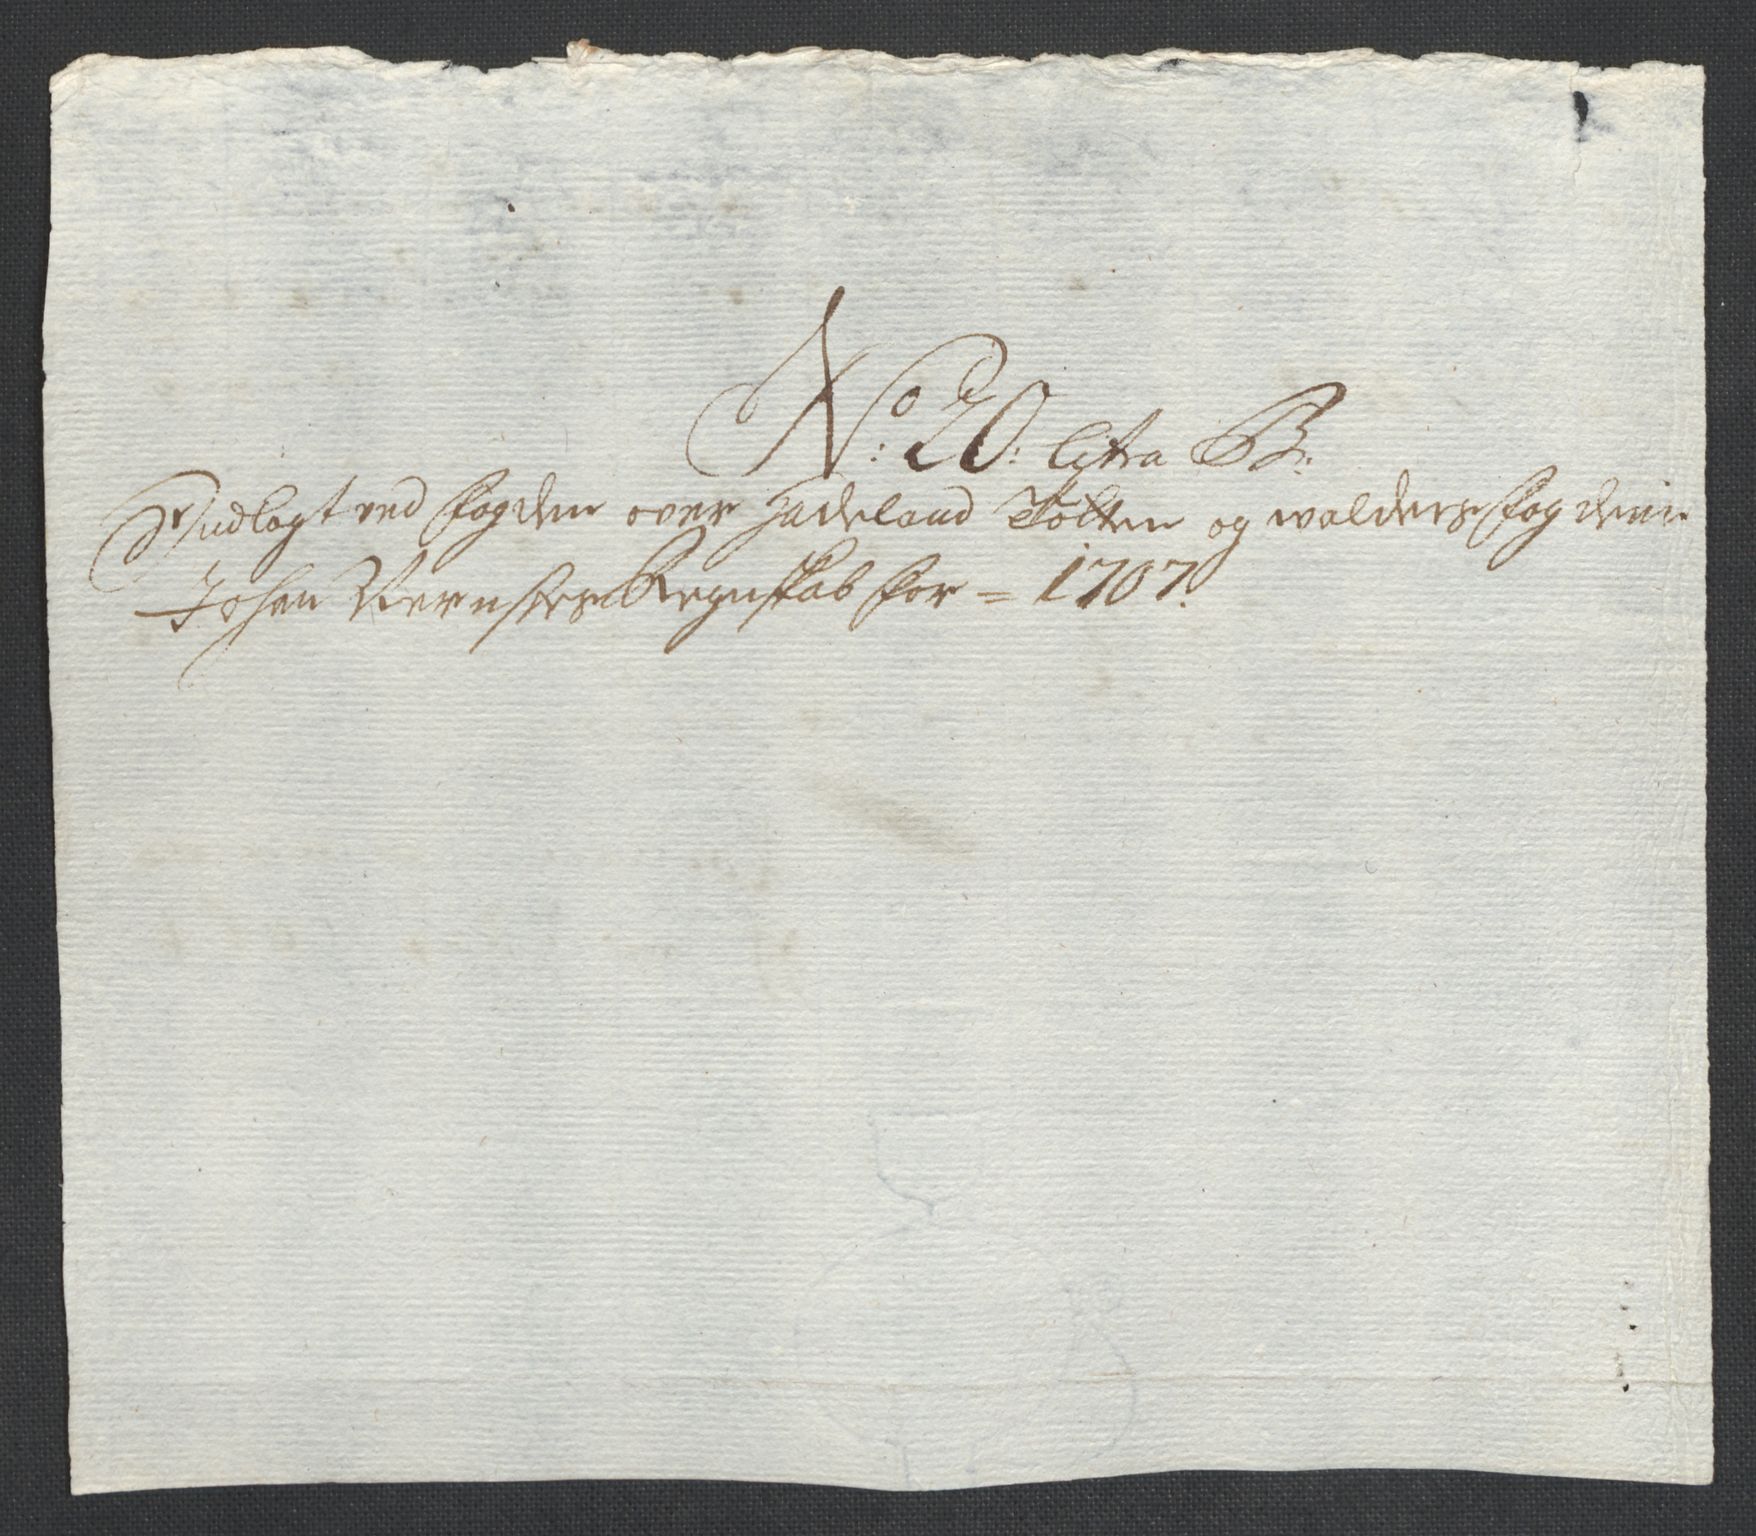 No: 20: litra B:
Indlagt ved fogden over Hadeland Totten og walders fogderie
Johan Vernstes Regnskab for = 1707.